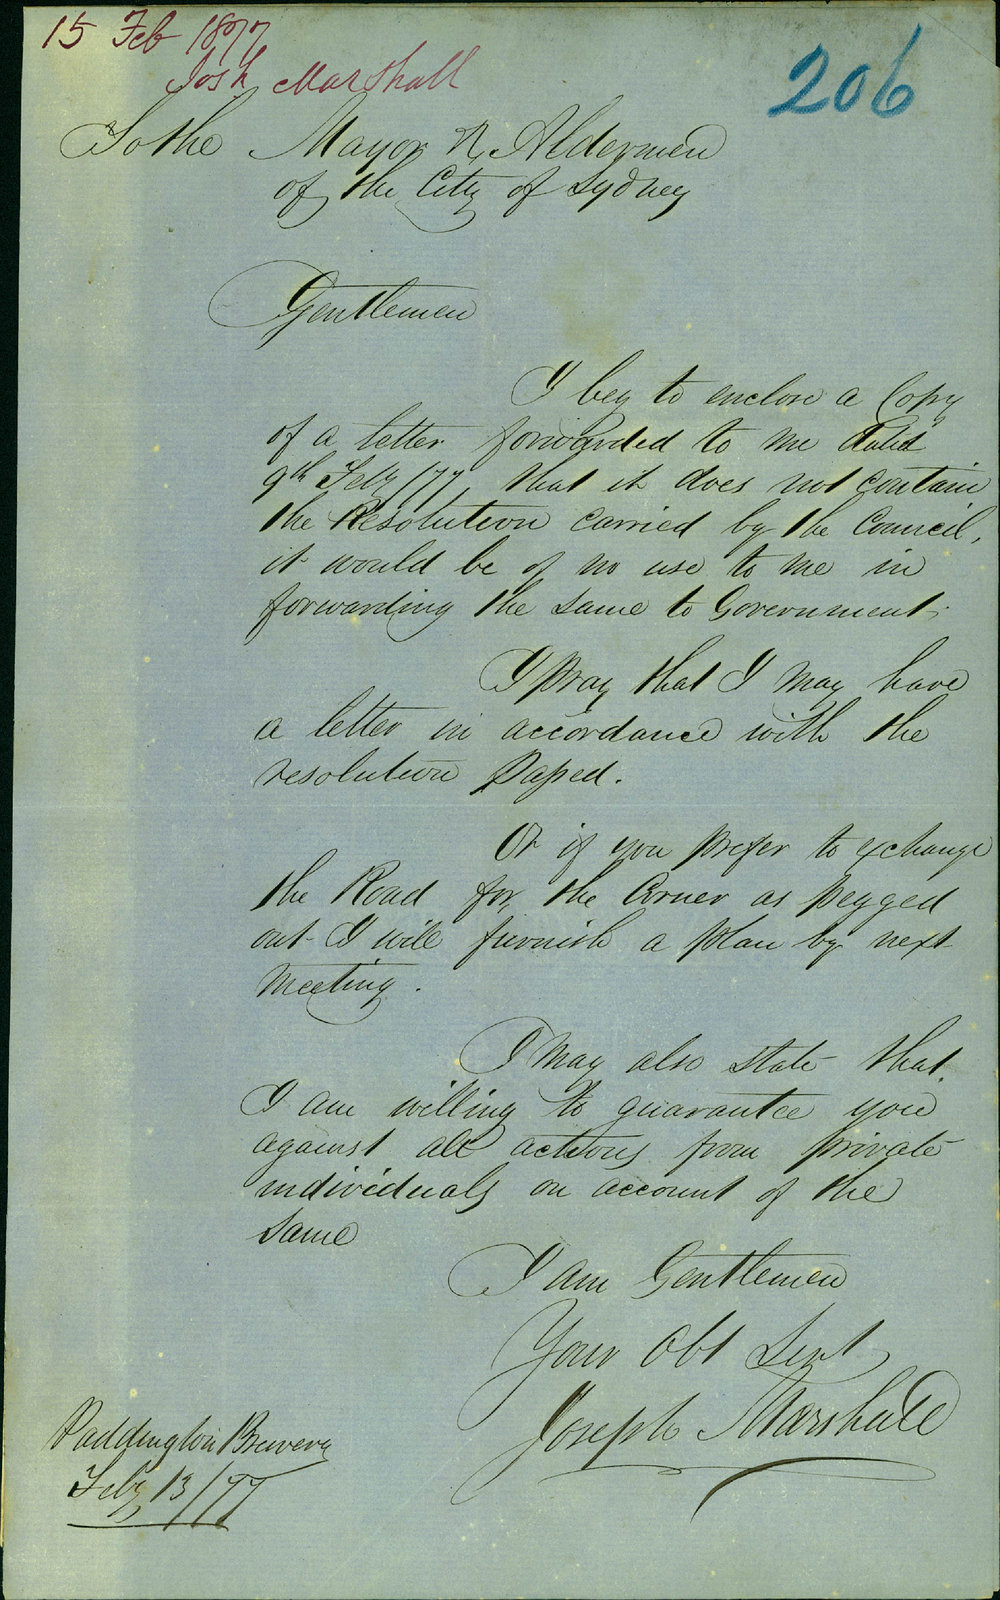 15 Feb 1877
Josh Marshall
206
To the Mayor & Aldermen
of the City of Sydney
Gentlemen
I beg to enclose a Copy
of a letter forwarded to me dated
9th Feby /77, that it does not contain
the Resolution carried by the Council,
it would be of no use to me in
forwarding the same to Government.
I pray that I may have
a letter in accordance with the
resolution passed.
Or if you prefer to exchange
the Road for the Corner as pegged
out I will furnish a plan by next
Meeting.
I may also state that
I am willing to guarantee you
against all actions from private
individuals on account of the
same
I am Gentlemen
Your Obt Servt
Joseph Marshall
Paddington Brewery
Feby 13/77